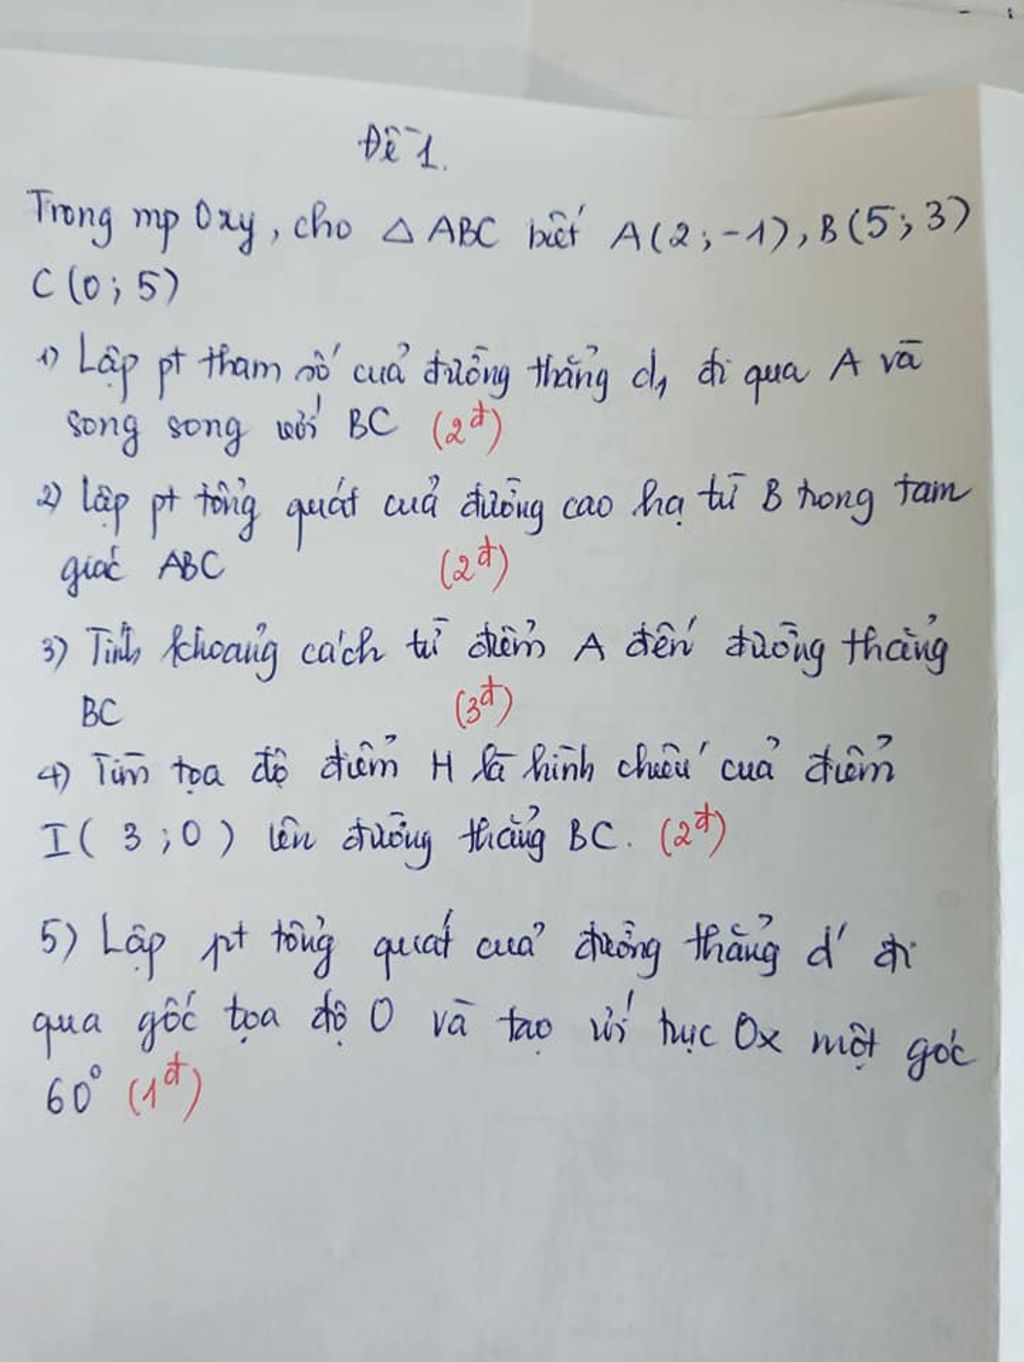 Đề 1.
Trong mp Oxy, cho △ ABC biết A(2;-1), B(5;3)
C(0;5)
1) Lập pt tham số của đường thẳng d₁ đi qua A và
song song với BC (2đ)
2) Lập pt tổng quát của đường cao hạ từ B trong tam
giác ABC (2đ)
3) Tính khoảng cách từ điểm A đến đường thẳng
BC (3đ)
4) Tìm tọa độ điểm H là hình chiếu của điểm
I(3;0) lên đường thẳng BC. (2đ)
5) Lập pt tổng quát của đường thẳng d' đi
qua gốc tọa độ O và tạo với trục Ox một góc
60° (1đ)